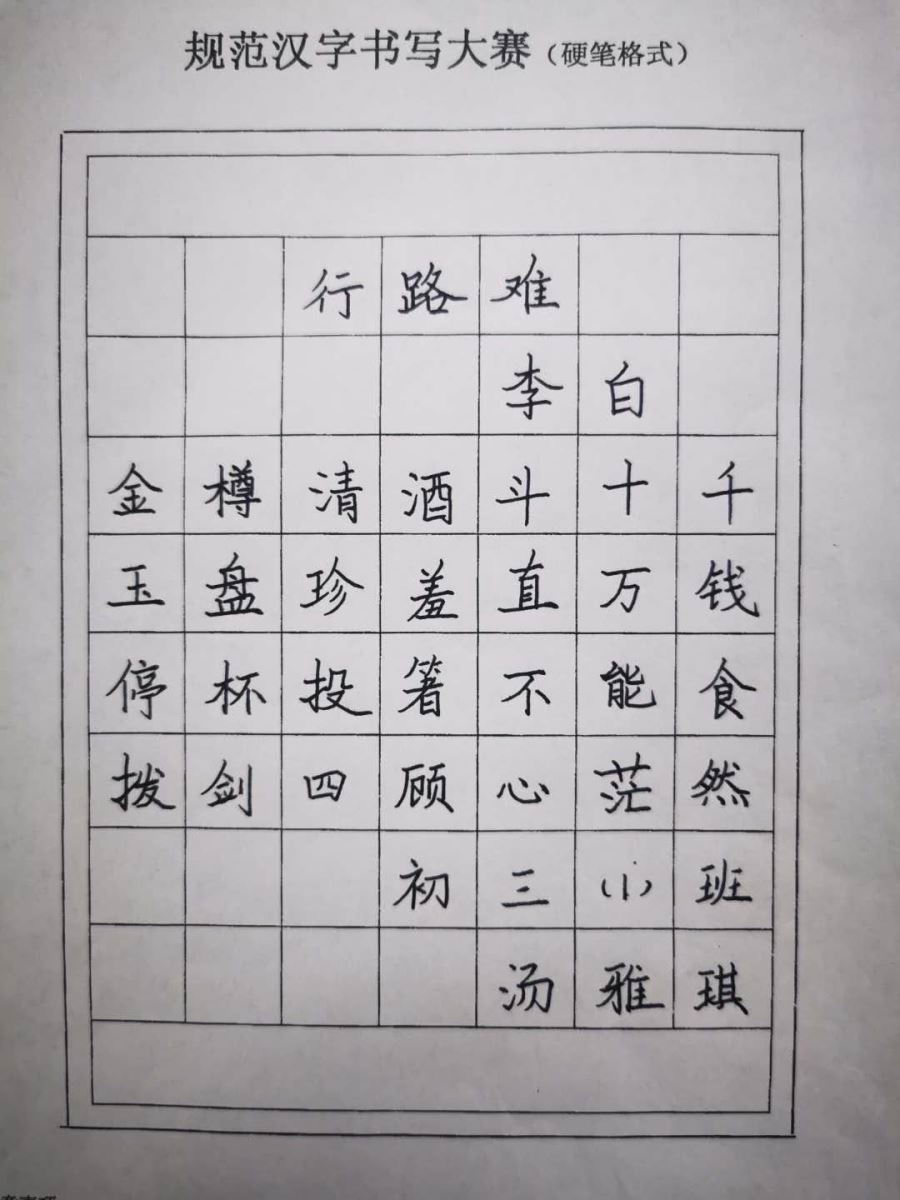 规范汉字书写大赛（硬笔格式）
行路难
李白
金樽清酒斗十千
玉盘珍羞直万钱
停杯投箸不能食
拨剑四顾心茫然
初三（1）班
汤雅琪